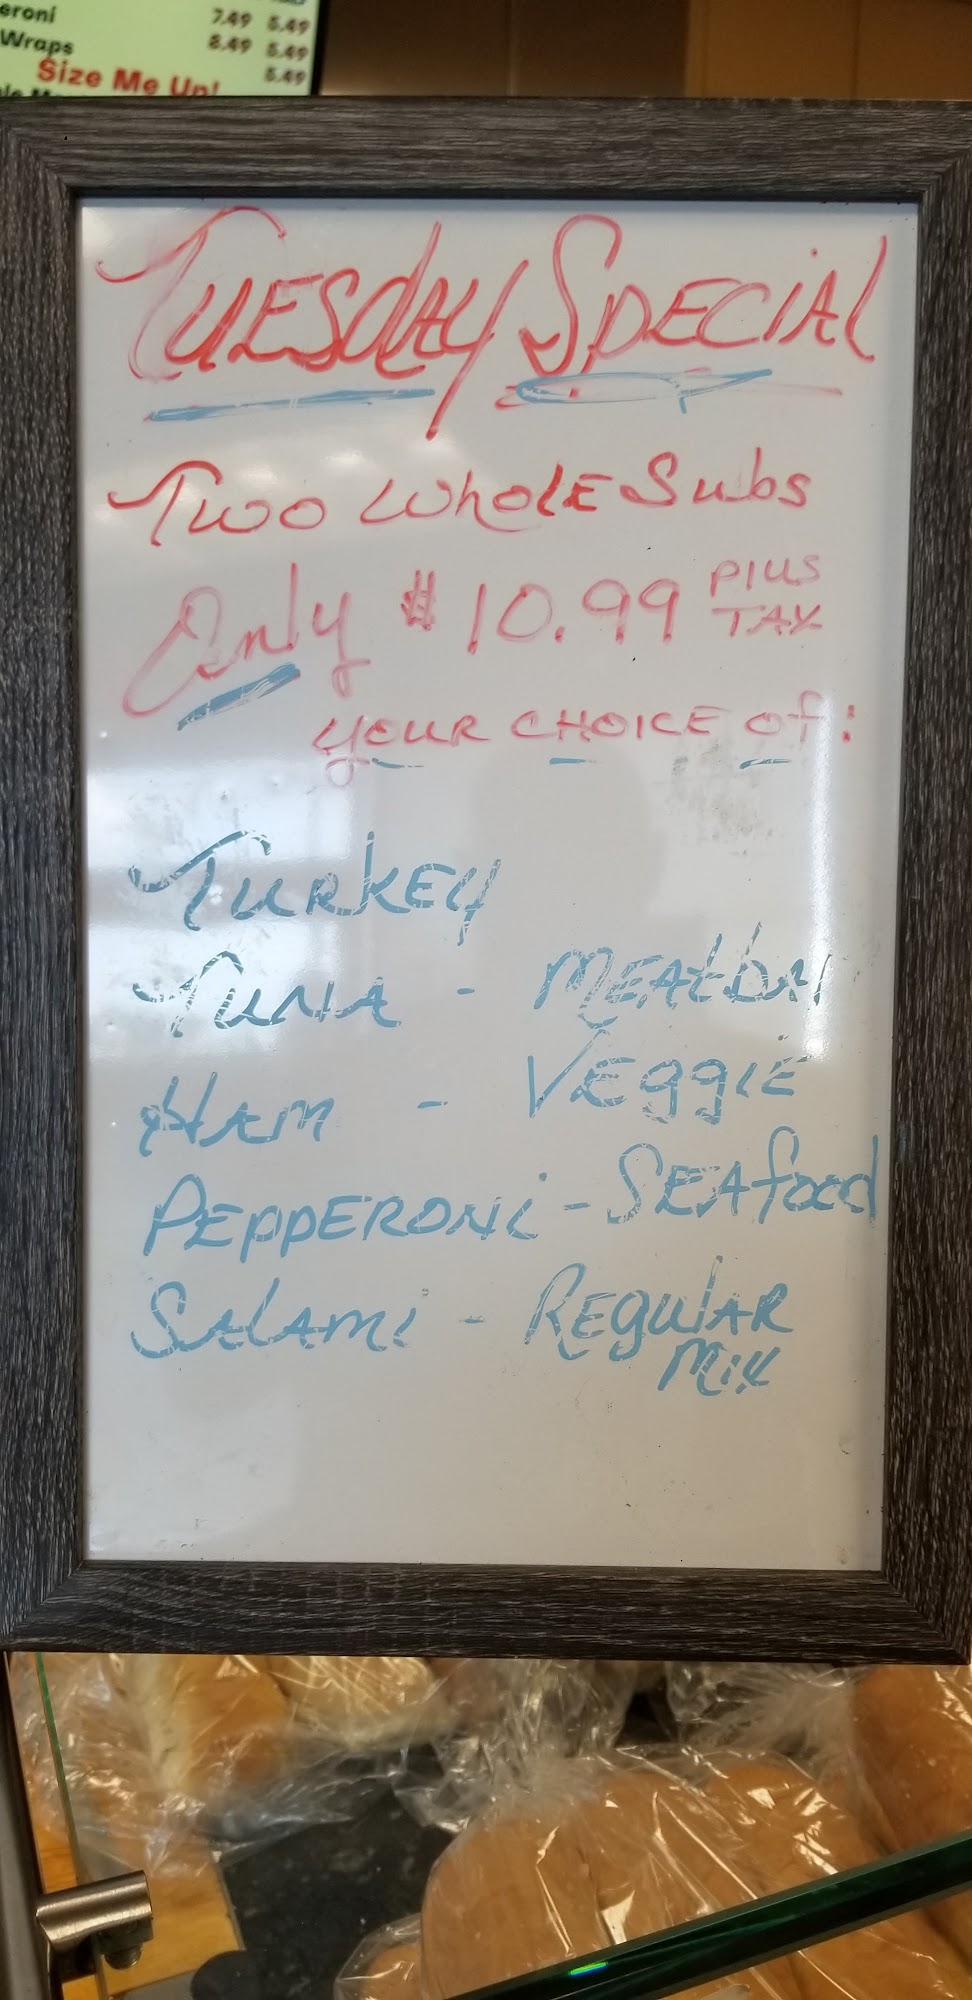 eroni 7.49 5.49
Wraps 8.49 5.49
5.49
Size Me Up!
TUESDAY SPECIAL
TWO WHOLE SUBS
Only $10.99 PLUS
TAX
YOUR CHOICE OF:
TURKEY
TUNA - MEATBALL
HAM - VEGGIE
PEPPERONI - SEAFOOD
SALAMI - REGULAR
MIX